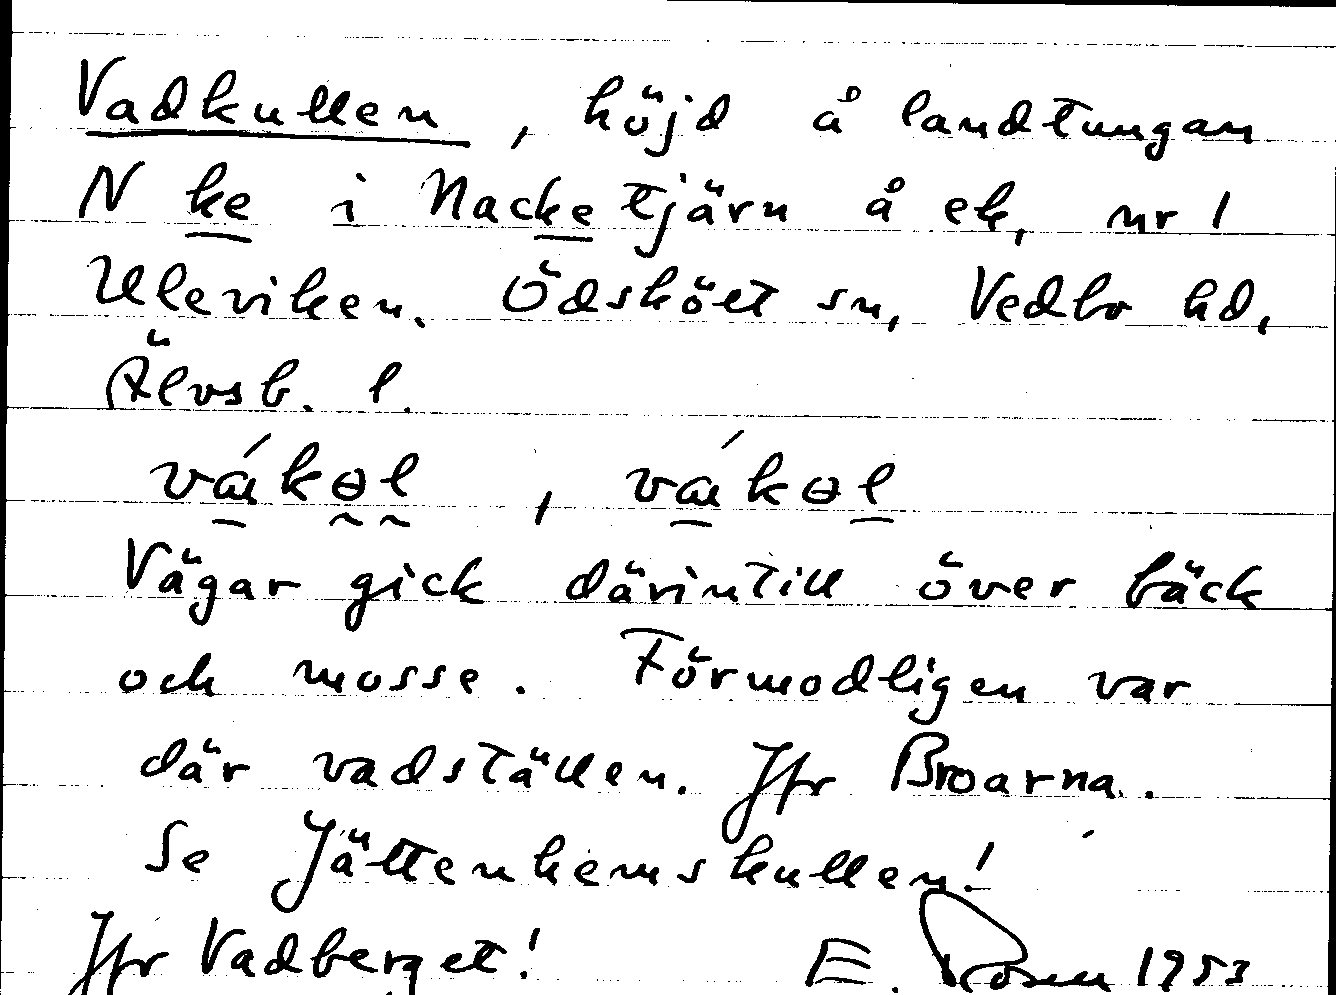 Vadkullen, höjd å landtungan
N ke i Nacketjärn å ek, nr 1
Uleviken. Ödskölt sn, Vedbo hd,
Älvsb. l.
Vägar gick därintill över bäck
och mosse. Förmodligen var
där vadställen. Jfr Broarna.
Se Jättenhemskullen!
Jfr Vadberget! E. Rosen 1953